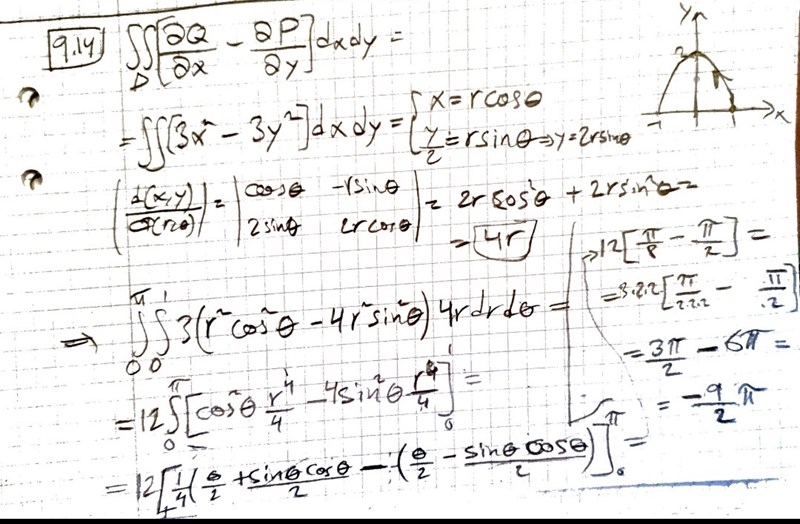 9.14 ∬_D [∂Q/∂x − ∂P/∂y] dxdy =
= ∬ [3x² − 3y²] dxdy = { x = rcosθ
y/2 = rsinθ ⇒ y = 2rsinθ
|d(x,y)/d(r,θ)| = |cosθ −rsinθ
2sinθ 2rcosθ| = 2rcos²θ + 2rsin²θ =
= 4r
⇒ ∫₀^π ∫₀¹ 3(r²cos²θ − 4r²sin²θ) 4r dr dθ =
= 12 ∫₀^π [cos²θ r⁴/4 − 4sin²θ r⁴/4]₀¹ =
= 12 [1/4 (θ/2 + sinθcosθ/2 − (θ/2 − sinθcosθ/2)]₀^π =
→ 12 [π/8 − π/2] =
= 3.2.2 [π/2.2.2 − π/.2]
= 3π/2 − 6π =
= −9/2 π
y
2
−1
1
x